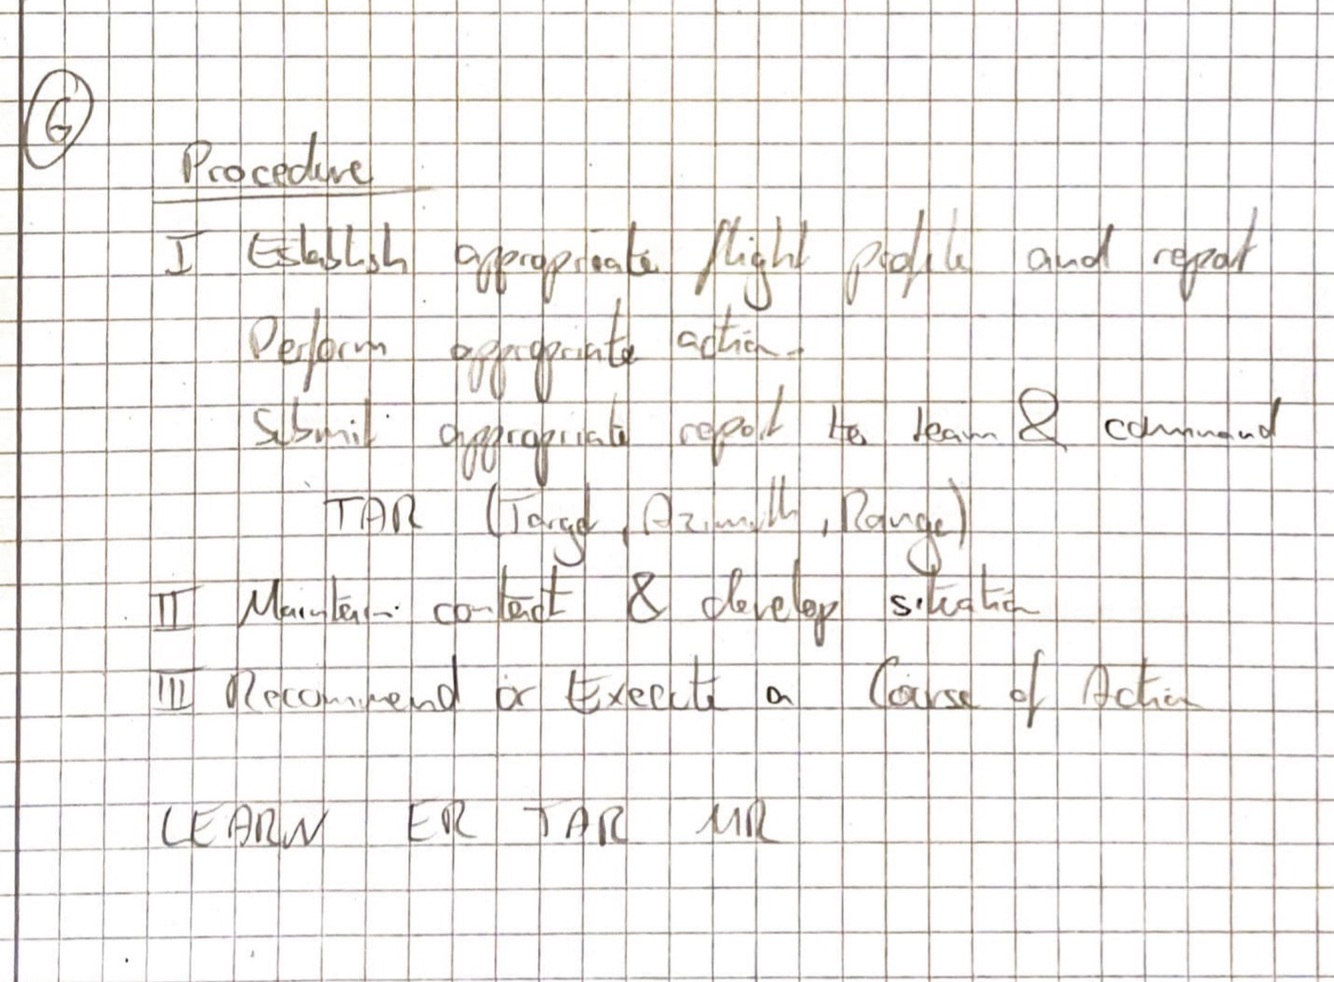 G
Procedure
I Establish appropriate flight profile and report
Perform appropriate action.
Submit appropriate report to team & command
TAR (Target, Azimuth, Range)
II Maintain contact & develop situation
III Recommend or Execute a Course of Action
LEARN ER TAR MR